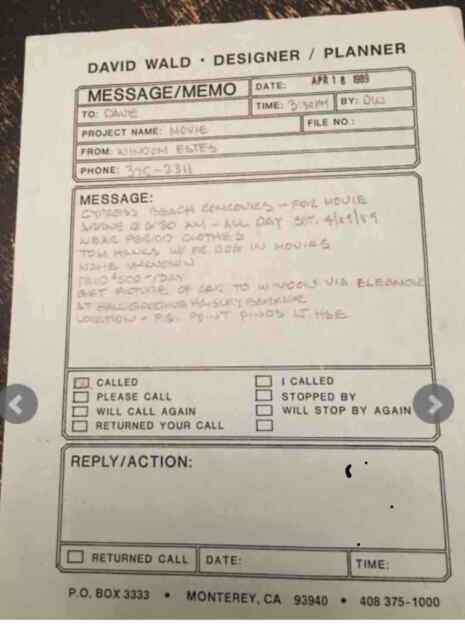 DAVID WALD • DESIGNER / PLANNER
MESSAGE/MEMO
DATE: APR 18 1989
TIME: 3:30PM BY: DW
TO: DAVE
PROJECT NAME: MOVIE
FILE NO.:
FROM: WINDOM ESTES
PHONE: 375-2311
MESSAGE:
CYPRESS BEACH CONCOURS - FOR MOVIE
6:30 AM - ALL DAY SAT. 4/29/89
WEAR PERIOD CLOTHES
TOM HANKS W/ DOG IN MOVIES
NAME UNKNOWN
PAID $500 - /DAY
GET PICTURE OF CAR TO WINDOM VIA ELEANOR
AT
LOCATION - P.G. POINT PINOS LT. HSE
CALLED
I CALLED
PLEASE CALL
STOPPED BY
WILL CALL AGAIN
WILL STOP BY AGAIN
RETURNED YOUR CALL
REPLY/ACTION:
RETURNED CALL DATE: TIME:
P.O. BOX 3333 • MONTEREY, CA 93940 • 408 375-1000